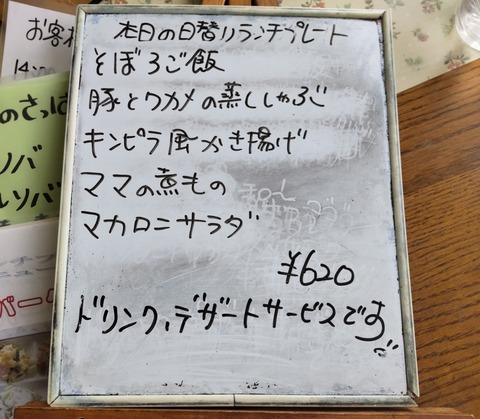 本日の日替りランチプレート
そぼろご飯
豚とワカメの蒸ししゃぶ
キンピラ風かき揚げ
ママの煮もの
マカロニサラダ
¥620
ドリンク、デザートサービスです。
お客
のさっぱ
ソバ
ルソバ